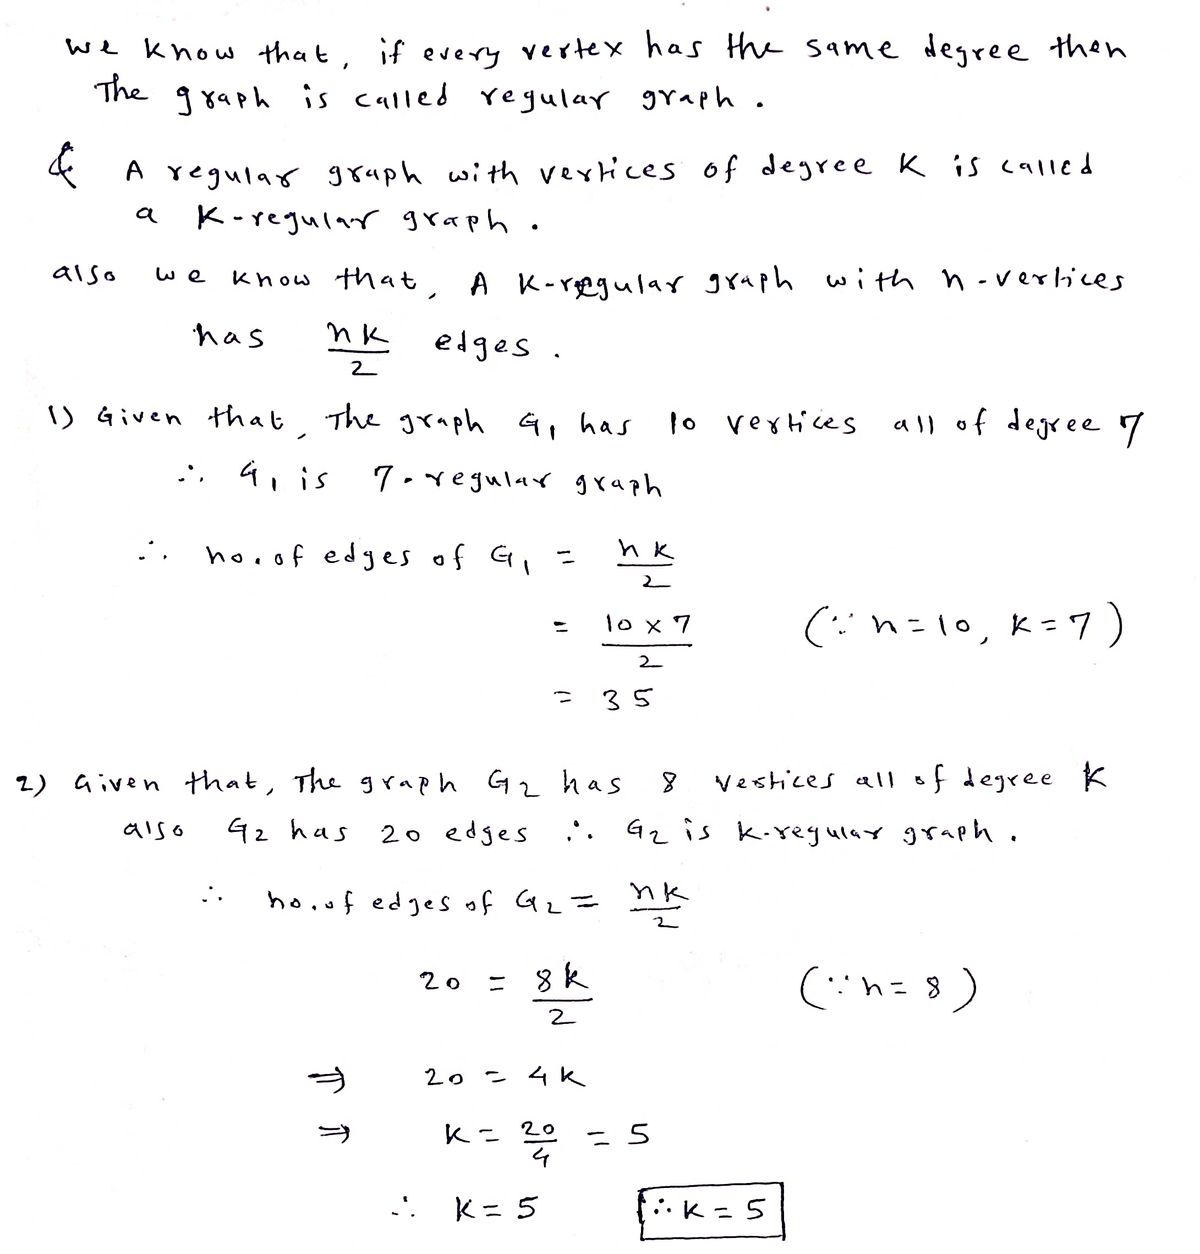 we know that, if every vertex has the same degree then
The graph is called regular graph.
& A regular graph with vertices of degree K is called
a K-regular graph.
also we know that, A K-regular graph with n-vertices
has nk/2 edges.
1) Given that, The graph G₁ has 10 vertices all of degree 7
∴ G₁ is 7-regular graph
∴ no. of edges of G₁ = nk/2
= 10×7/2 (∵ n=10, K=7)
= 35
2) Given that, The graph G₂ has 8 vertices all of degree K
also G₂ has 20 edges ∴ G₂ is K-regular graph.
∴ no. of edges of G₂ = nk/2
20 = 8k/2 (∵ n=8)
⇒ 20 = 4K
⇒ K = 20/4 = 5
∴ K = 5 ∴ K = 5